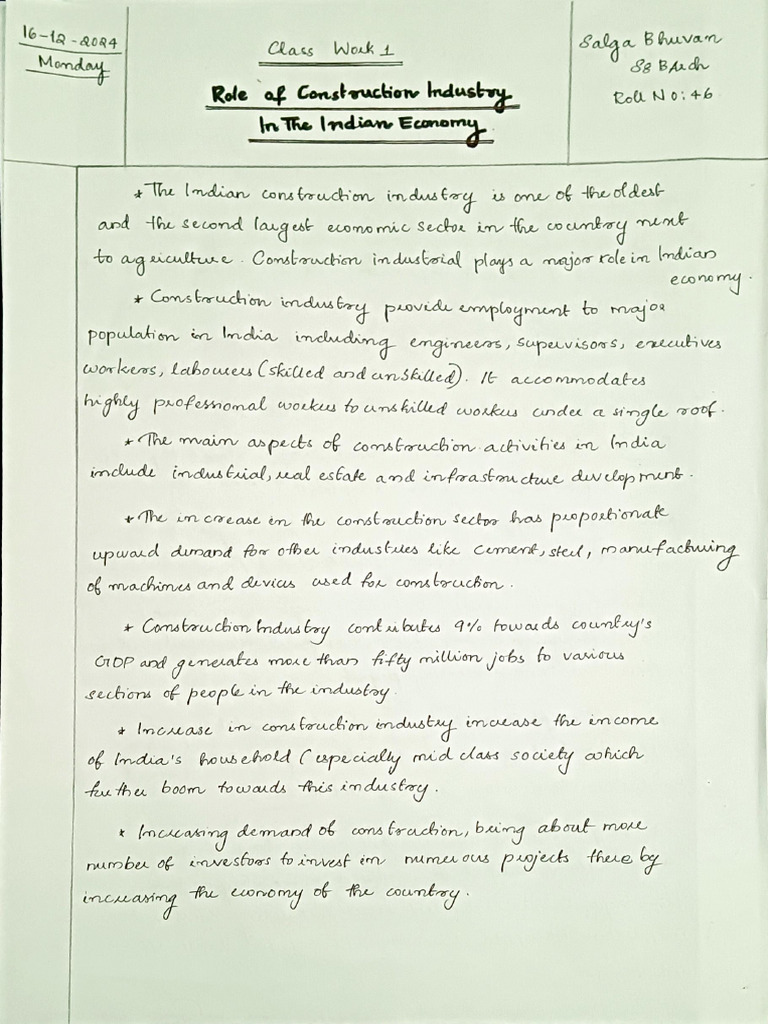 16-12-2024
Monday
Class Work 1
Role of Construction Industry
In The Indian Economy
Salga Bhuvan
S8 BArch
Roll No: 46
* The Indian construction industry is one of the oldest
and the second largest economic sector in the country next
to agriculture. Construction industrial plays a major role in Indian
economy.
* Construction industry provide employment to major
population in India including engineers, supervisors, executives
workers, labourers (skilled and unskilled). It accommodates
highly professional workers to unskilled workers under a single roof.
* The main aspects of construction activities in India
include industrial, real estate and infrastructure development.
* The increase in the construction sector has proportionate
upward demand for other industries like cement, steel, manufacturing
of machines and devices used for construction.
* Construction Industry contributes 9% towards country's
GDP and generates more than fifty million jobs to various
sections of people in the industry.
* Increase in construction industry increase the income
of India's household (especially mid class society which
further boom towards this industry.
* Increasing demand of construction, being about more
number of investors to invest in numerous projects there by
increasing the economy of the country.